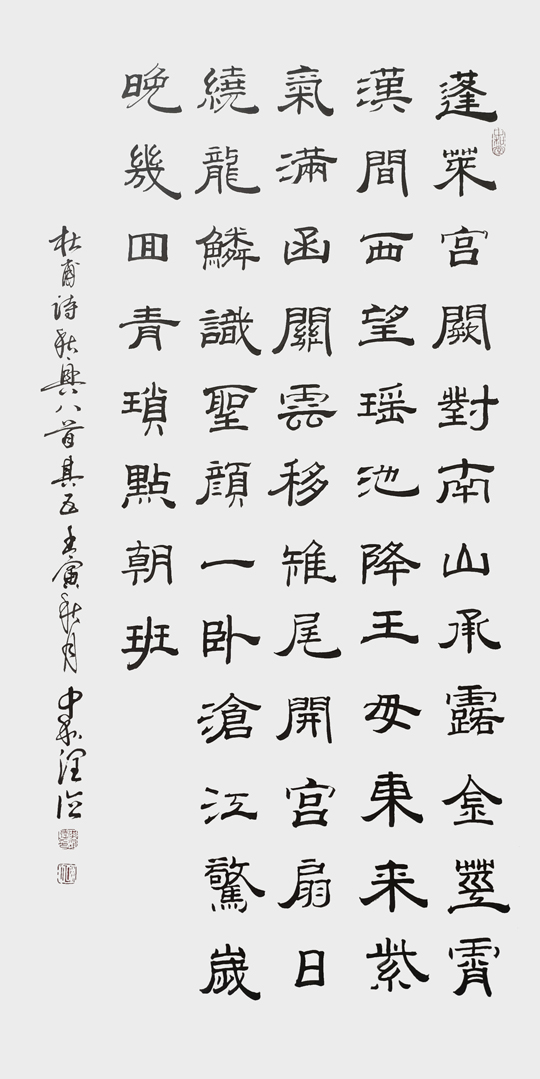 蓬萊宫闕對南山承露金莖霄
漢間西望瑶池降王母東来紫
氣滿函關雲移雉尾開宫扇日
繞龍鱗識聖顔一卧滄江驚歲
晚幾回青瑣點朝班
杜甫詩秋興八首其五 壬寅秋月 中